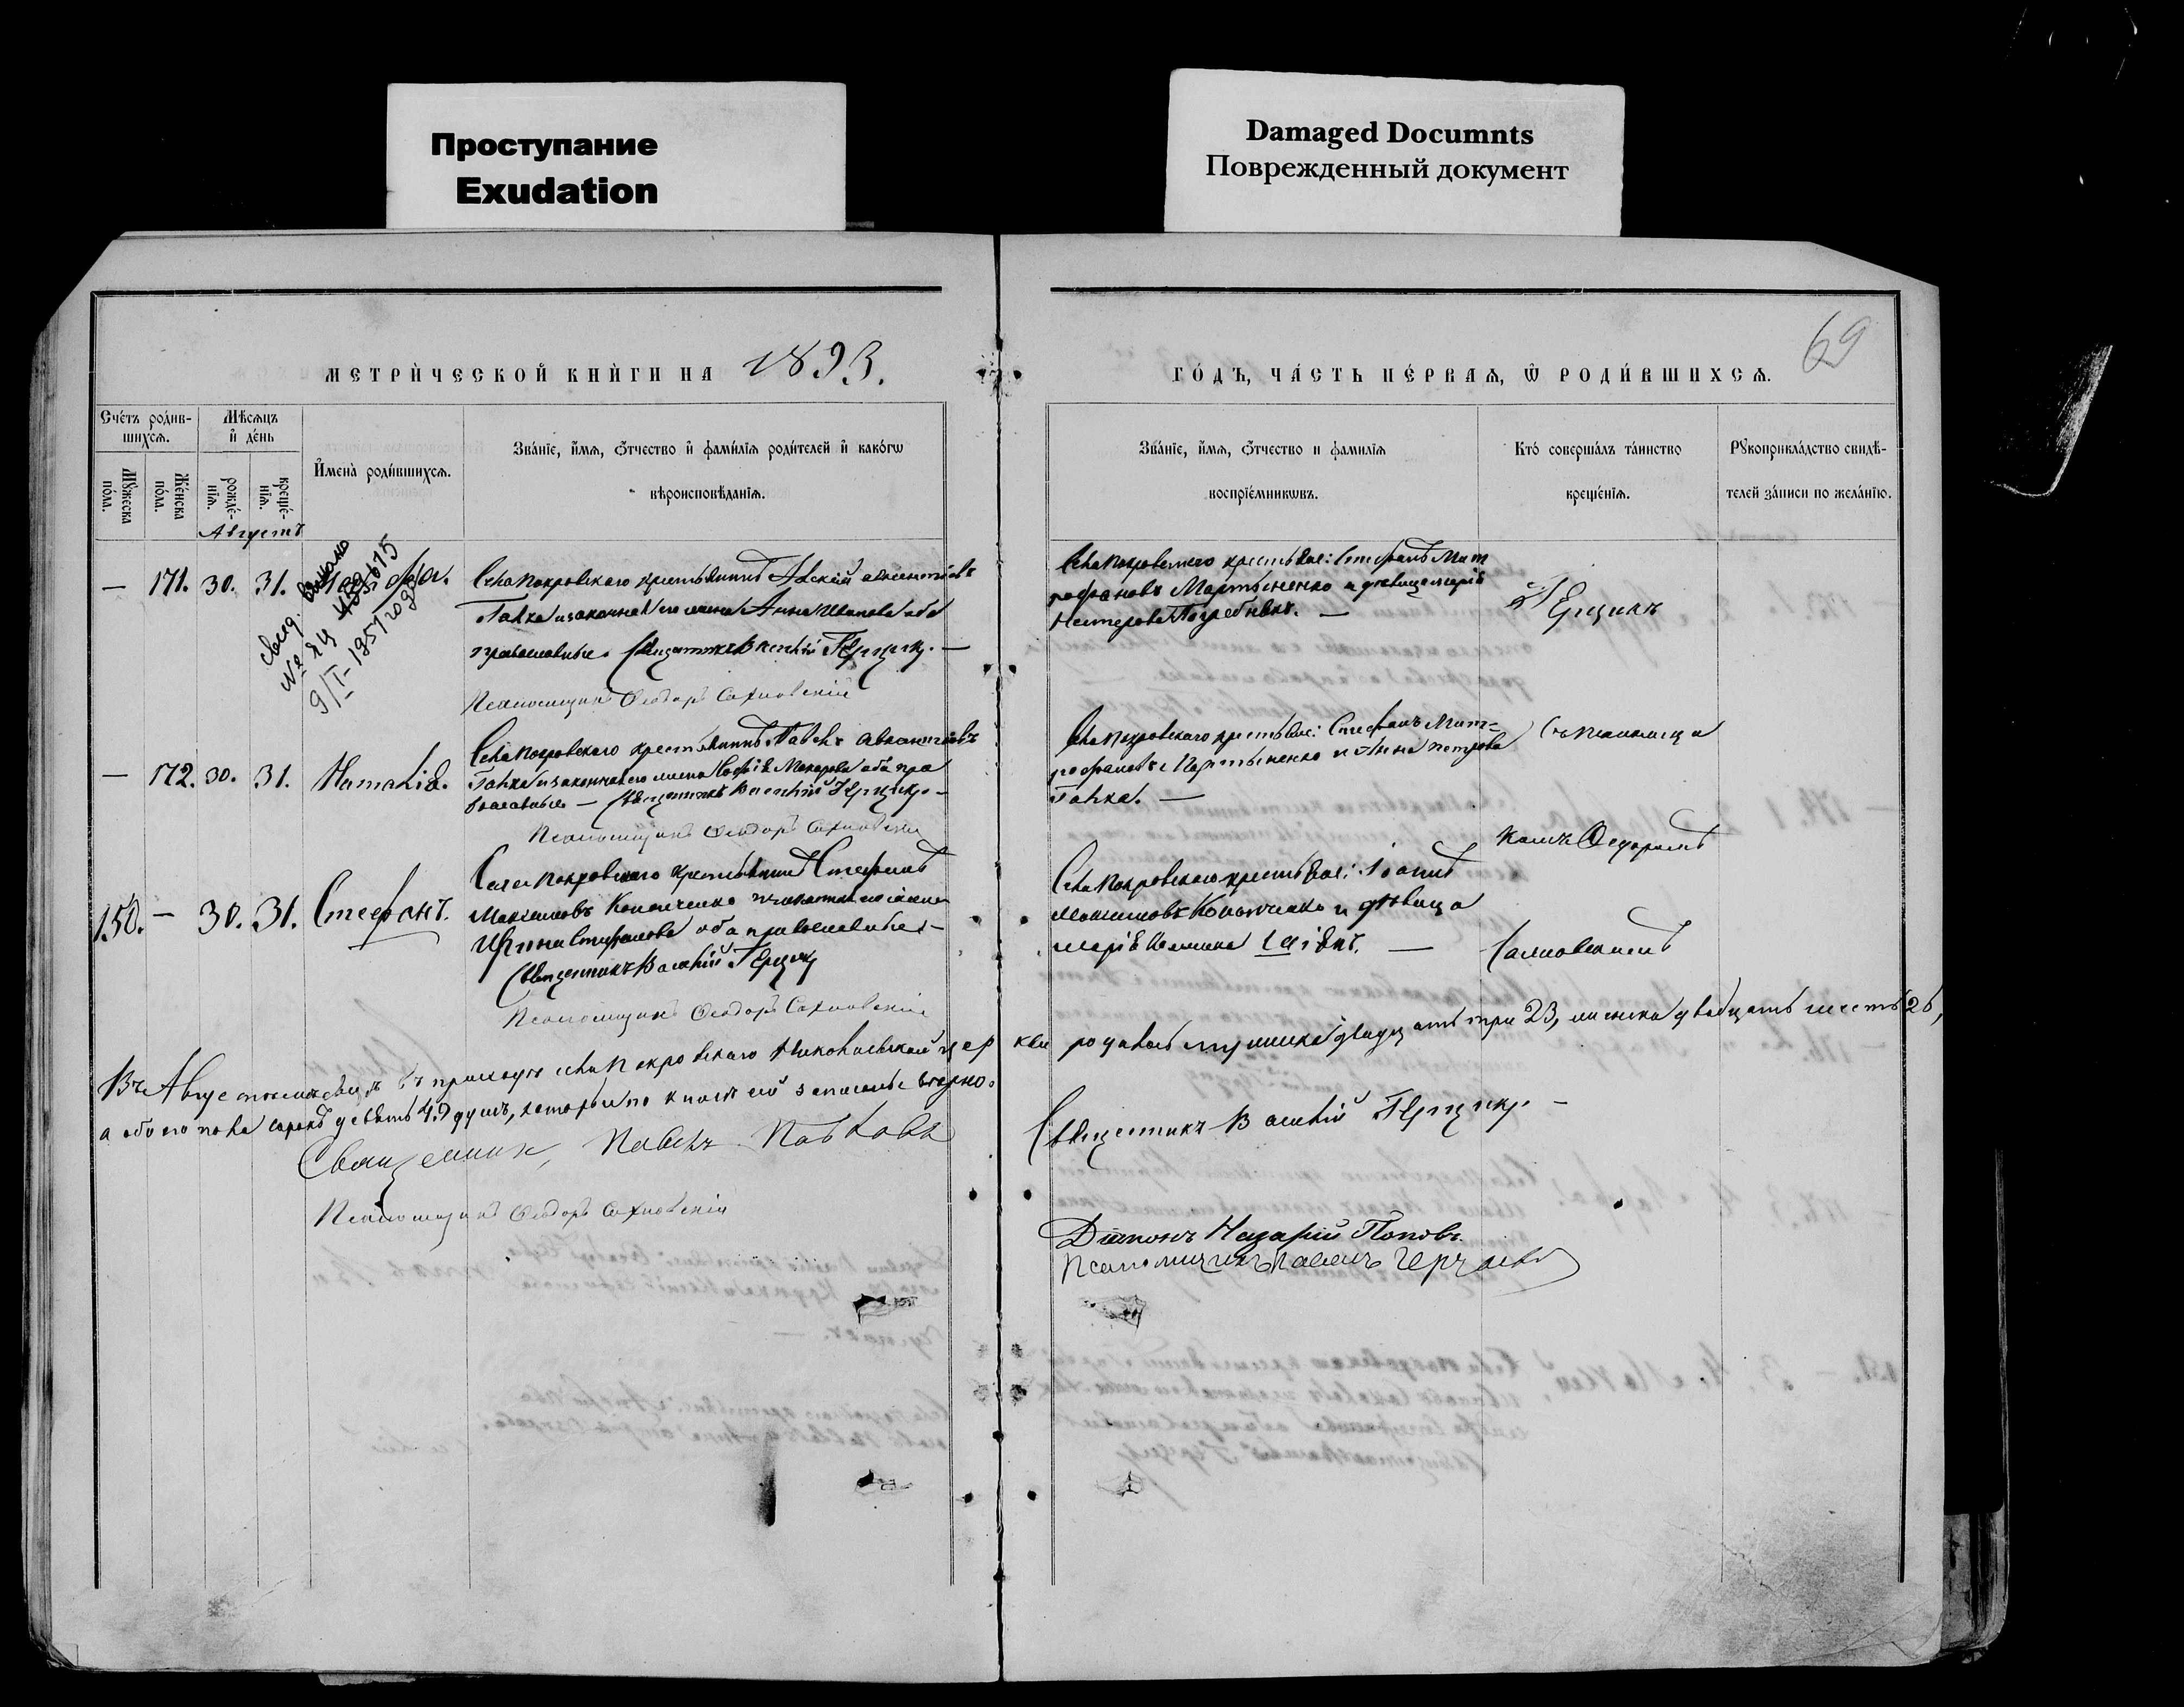 Проступание
Exudation
Damaged Documnts
Поврежденный документ
69
МЕТРИ́ЧЕСКОЙ КНИ́ГИ НА 1893.
ГО́ДЪ, ЧА́СТЬ ПЕ́РВАѦ, Ѿ РОДИ́ВШИХСѦ.
Сче́тъ роди́в-
шихсѧ.
Мꙋ́жеска
по́ла.
Же́нска
по́ла.
Мѣ́сѧцъ
и҆ де́нь
рожде́-
нїѧ.
креще́-
нїѧ.
И҆мена̀ роди́вшихсѧ.
Зва́нїе, и҆́мѧ, ѻ҆́тчество и҆ фами́лїѧ роди́телей и҆ како́гѡ
вѣроисповѣ́данїѧ.
Зва́нїе, и҆́мѧ, ѻ҆́тчество и фамилїѧ
воспрїе́мникѡвъ.
Кто́ соверша́лъ та́инство
креще́нїѧ.
Рꙋкоприкла́дство свидѣ́-
телей за́писи по жела́нїю.
Августъ
— 171. 30. 31.
свид.
№ ЯЦ 4835615
9/I-1951 года
Села Покровскаго крестьянинъ
Галка и законная его жена Анна Иванова оба
православные. Священникъ Василий Герцик. —
Псаломщикъ Ѳеодоръ Сахновскій
Села Покровскаго крестьяне: Стефанъ Мит
рофановъ Мартыненко и девица Марія
Нестерова —
— 172. 30. 31. Наталія.
Села Покровскаго крестьянинъ Павелъ
Галка и законная его жена Софія Макарова оба пра
вославные — Священникъ Василій Герцикъ —
Псаломщикъ Ѳеодоръ Сахновскій
Села Покровскаго крестьяне: Стефанъ Мит=
рофановъ Мартыненко и Анна Петрова
Галка. —
Съ псаломщи
комъ Ѳеодоромъ
Сахновскимъ
150. — 30. 31. Стефанъ.
Села Покровскаго крестьянинъ Стефанъ
Максимовъ Кононченко и законная его жена
Ирина Стефанова оба православные —
Священникъ Василій Герцик
Псаломщикъ Ѳеодоръ Сахновскій
Села Покровскаго крестьяне: Іоаннъ
Максимовъ Кононченко и девица
Марія —
Въ Августе месяце въ приходе села Покровскаго Николаевской церкви родилось мужска двадцать три 23, женска двадцать шесть 26,
а обоего пола сорокъ девять 49 душъ, которые по книге сей записаны верно.
Священникъ Василій Герцикъ —
Священник, Павелъ Павловъ
Псаломщикъ Ѳеодоръ Сахновскій
Діаконъ Назарій Поповъ
Псаломщикъ